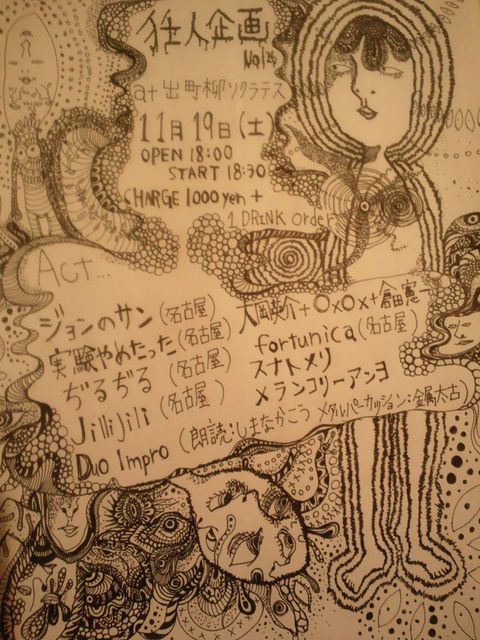 狂人企画
at 出町柳ソクラテス
11月19日(土)
OPEN 18:00
START 18:30
CHARGE 1000yen +
1 DRINK order
Act...
ジョンのサン(名古屋)
実験やめたった(名古屋)
ぢるぢる(名古屋)
Jillijili(名古屋)
大岡英介+○×○×+倉田憲一
fortunica(名古屋)
スナトメリ
メランコリーアンヨ
Duo Impro(朗読:しまなかこう メタルパーカッション:金属太古)